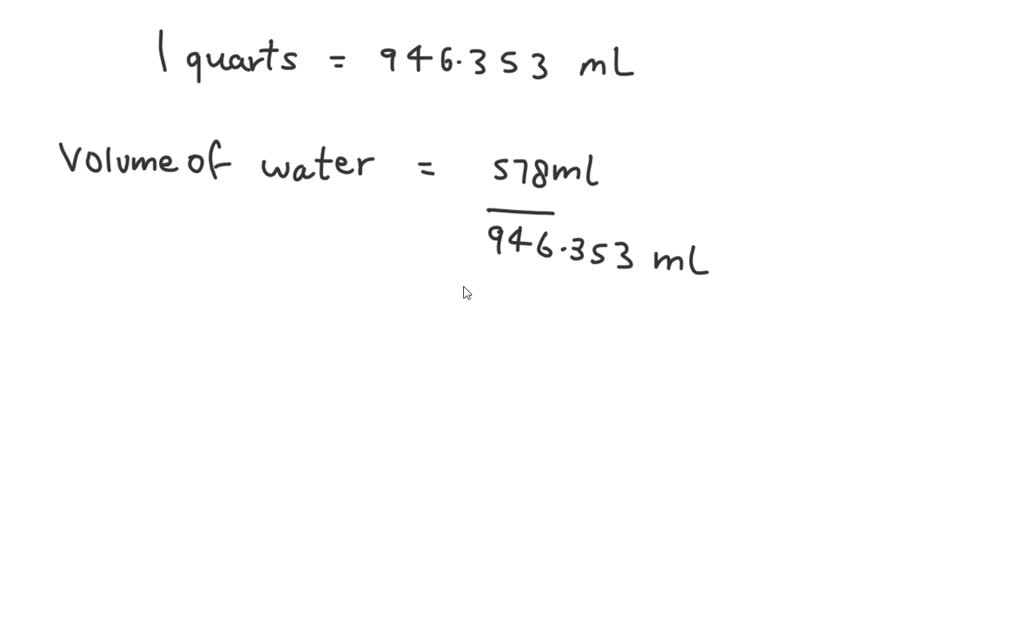 1 quarts = 946.353 mL
Volume of water = 578ml
946.353 mL